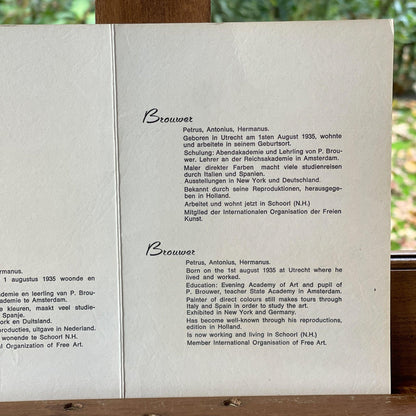 Brouwer
Petrus, Antonius, Hermanus.
Geboren in Utrecht am 1sten August 1935, wohnte
und arbeitete in seinem Geburtsort.
Schulung: Abendakademie und Lehrling von P. Brou-
wer. Lehrer an der Reichsakademie in Amsterdam.
Maler direkter Farben macht viele studienreisen
durch Italien und Spanien.
Ausstellungen in New York und Deutschland.
Bekannt durch seine Reproduktionen, herausgege-
ben in Holland.
Arbeitet und wohnt jetzt in Schoorl (N.H.)
Mitglied der Internationalen Organisation der Freien
Kunst.
Brouwer
Petrus, Antonius, Hermanus.
Born on the 1st august 1935 at Utrecht where he
lived and worked.
Education: Evening Academy of Art and pupil of
P. Brouwer, teacher State Academy in Amsterdam.
Painter of direct colours still makes tours through
Italy and Spain in order to study the art.
Exhibited in New York and Germany.
Has become well-known through his reproductions,
edition in Holland.
Is now working and living in Schoorl (N.H.)
Member International Organisation of Free Art.
ermanus.
1 augustus 1935 woonde en
ademie en leerling van P. Brou-
ademie te Amsterdam.
e kleuren, maakt veel studie-
Spanje.
ork en Duitsland.
oducties, uitgave in Nederland.
wonende te Schoorl N.H.
al Organization of Free Art.